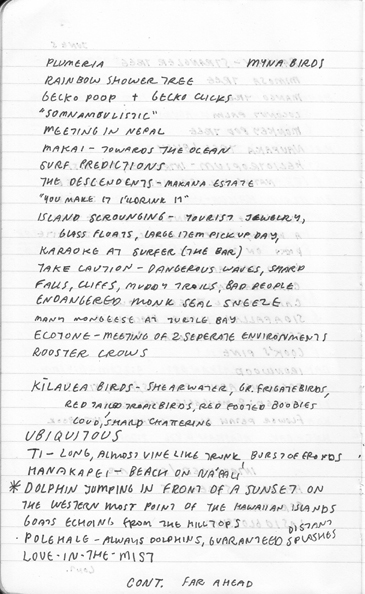 PLUMERIA MYNA BIRDS
RAINBOW SHOWER TREE
GECKO POOP + GECKO CLICKS
"SOMNAMBULISTIC"
MEETING IN NEPAL
MAKAI - TOWARDS THE OCEAN
SURF PREDICTIONS
THE DESCENDENTS - MAKANA ESTATE
"YOU MAKE IT I'LL DRINK IT"
ISLAND SCROUNGING - TOURIST JEWELRY,
GLASS FLOATS, LARGE ITEM PICK UP DAY,
KARAOKE AT SURFER (THE BAR)
TAKE CAUTION - DANGEROUS WAVES, SHARP
FALLS, CLIFFS, MUDDY TRAILS, BAD PEOPLE
ENDANGERED MONK SEAL SNEEZE
MANY MONGEESE AT TURTLE BAY
ECOTONE - MEETING OF 2 SEPERATE ENVIRONMENTS
ROOSTER CROWS
KĪLAUEA BIRDS - SHEARWATER, GR. FRIGATEBIRDS,
RED TAILED TROPICBIRDS, RED FOOTED BOOBIES
LOUD, SHARP CHATTERING
UBIQUITOUS
TI - LONG, ALMOST VINE LIKE TRUNK, BURST OF FRONDS
- BEACH ON
* DOLPHIN JUMPING IN FRONT OF A SUNSET ON
THE WESTERN MOST POINT OF THE HAWAIIAN ISLANDS
GOATS ECHOING FROM THE HILLTOPS
• POLEHALE - ALWAYS DOLPHINS, GUARANTEED DISTANT SPLASHES
LOVE-IN-THE-MIST
CONT. FAR AHEAD